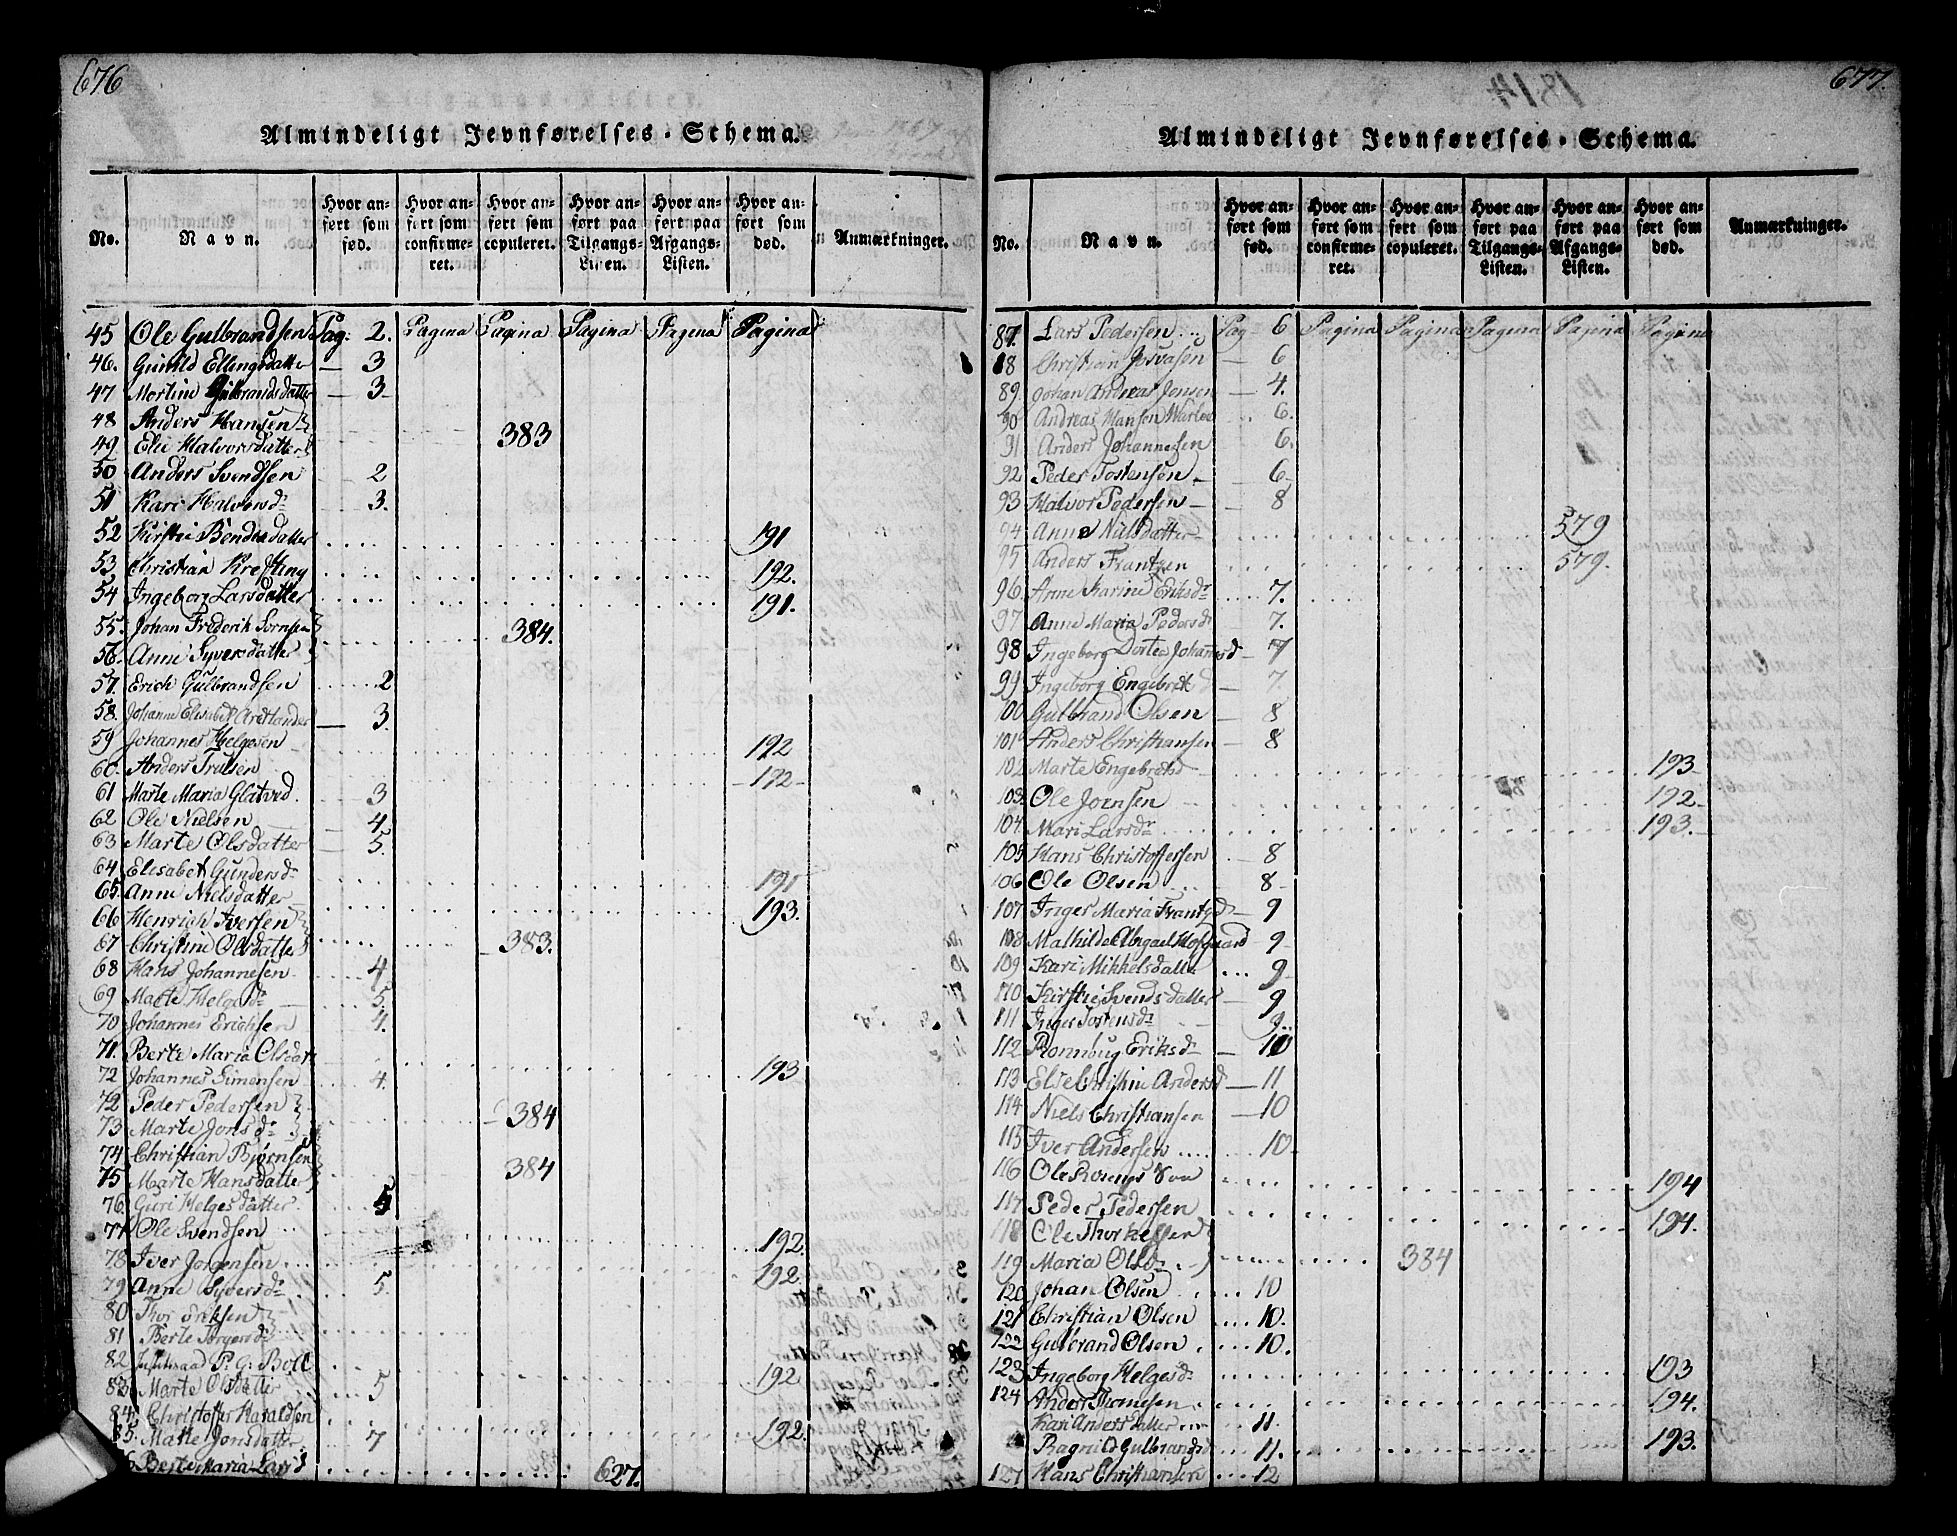 676
Almindeligt Jevnførelses-Schema.
No. Navn. Hvor anført som fød. Hvor anført som confirmeret. Hvor anført som copuleret. Hvor anført paa Tilgangs-Listen. Hvor anført paa Afgangs-Listen. Hvor anført som død. Anmærkninger.
45 Ole Gulbrandsen Pag: 2. Pagina Pagina Pagina Pagina Pagina
46. Gunild Ellingsdatter 3
47 Mortine Gulbrandsdatter 3
48 Anders Hansen
49 Elie Halvorsdatter 383
50 Anders Svendsen 2
51 Kari Halvorsdr 3.
52 Kirstie Bendesdatter 191
53 Christian Krefting 192.
54 Ingeborg Larsdatter 191.
55. Johan Friderik Sørnsen 384.
56. Anne Syversdatter
57. Erich Gulbrandsen 2
58. Johanne Elisabet 3.
59 Johannes Helgesen 192
60. Anders Trulsen 192
61 Marte Maria Glatved 3
62 Ole Nielsen 4
63 Marte Olsdatter 5.
64 Elisabet Gundersd 191
65. Anne Nielsdatter 193.
66 Henrich Iversen
67 Christine Olsdatter 383.
68 Hans Johannesen 4
69 Marte Helgesdr 5.
70 Johannes Erichsen 4.
71. Berte Maria Olsdatr 193
72 Johannes Simensen 4.
72 Peder Pedersen 384
73 Marte Jonsdr
74 Christian Bjørnsen
75 Marte Hansdatter 384
76 Guri Helgesdatter 5
77 Ole Svendsen 192.
78 Iver Jørgensen 192.
79 Anne Syversdr 5.
80 Thor Eriksen
81 Berte
82 P. G. Boll 192
83. Marte Olsdatter 5
84 Christoffer Haraldsen 192.
85. Marte Jonsdatter 7
6 Berte Maria Larsd 627.
677.
Almindeligt Jevnførelses-Schema.
No. Navn. Hvor anført som fød. Hvor anført som confirmeret. Hvor anført som copuleret. Hvor anført paa Tilgangs-Listen. Hvor anført paa Afgangs-Listen. Hvor anført som død. Anmærkninger.
87. Lars Pedersen Pag 6 Pagina Pagina Pagina Pagina Pagina
88 Christian Josvasen 6
89. Johan Andreas Jensen 4.
90 Andreas Hansen 6.
91 Anders Johannesen 6.
92 Peder Tostensen 6
93 Halvor Pedersen 8
94 Anne Nilsdatter 579
95 Anders Frantzen 579.
96. Anne Karine Eriksdr 7.
97 Anne Maria Pedersd 7.
98 Ingeborg Dortea Johannesd 7
99 Ingeborg Engebretsd 7.
100 Gulbrand Olsen 8
101 Anders Christiansen 8
102 Marte Engebretsd 193
103. Ole Jørnsen 192
104. Mari Larsdr 193.
105 Hans Christoffersen 8
106 Ole Olsen 8
107. Inger Maria Frantzd 9
108 Mathilde Abigael Hofgaard 9
109 Kari Mikkelsdatter 9
110 Kirstie Svendsdatter 9
111 Inger Tostensdr 9
112 Ronnbug Eriksd 10
113 Else Christine Andersd 11
114 Niels Christiansen 10
115 Iver Andersen 10
116 Ole 194
117. Peder Pedersen 194.
118 Ole Thorkelsen
119 Maria Olsdr 334
120 Johan Olsen 10
121 Christian Olsen 10.
122 Gulbrand Olsen 10.
123 Ingeborg Helgesdr 193
124 Anders Thomesen 194.
Kari Andersdatter 11.
Ragnild Gulbrandsd 11. 193.
127 Hans Christiansen 12